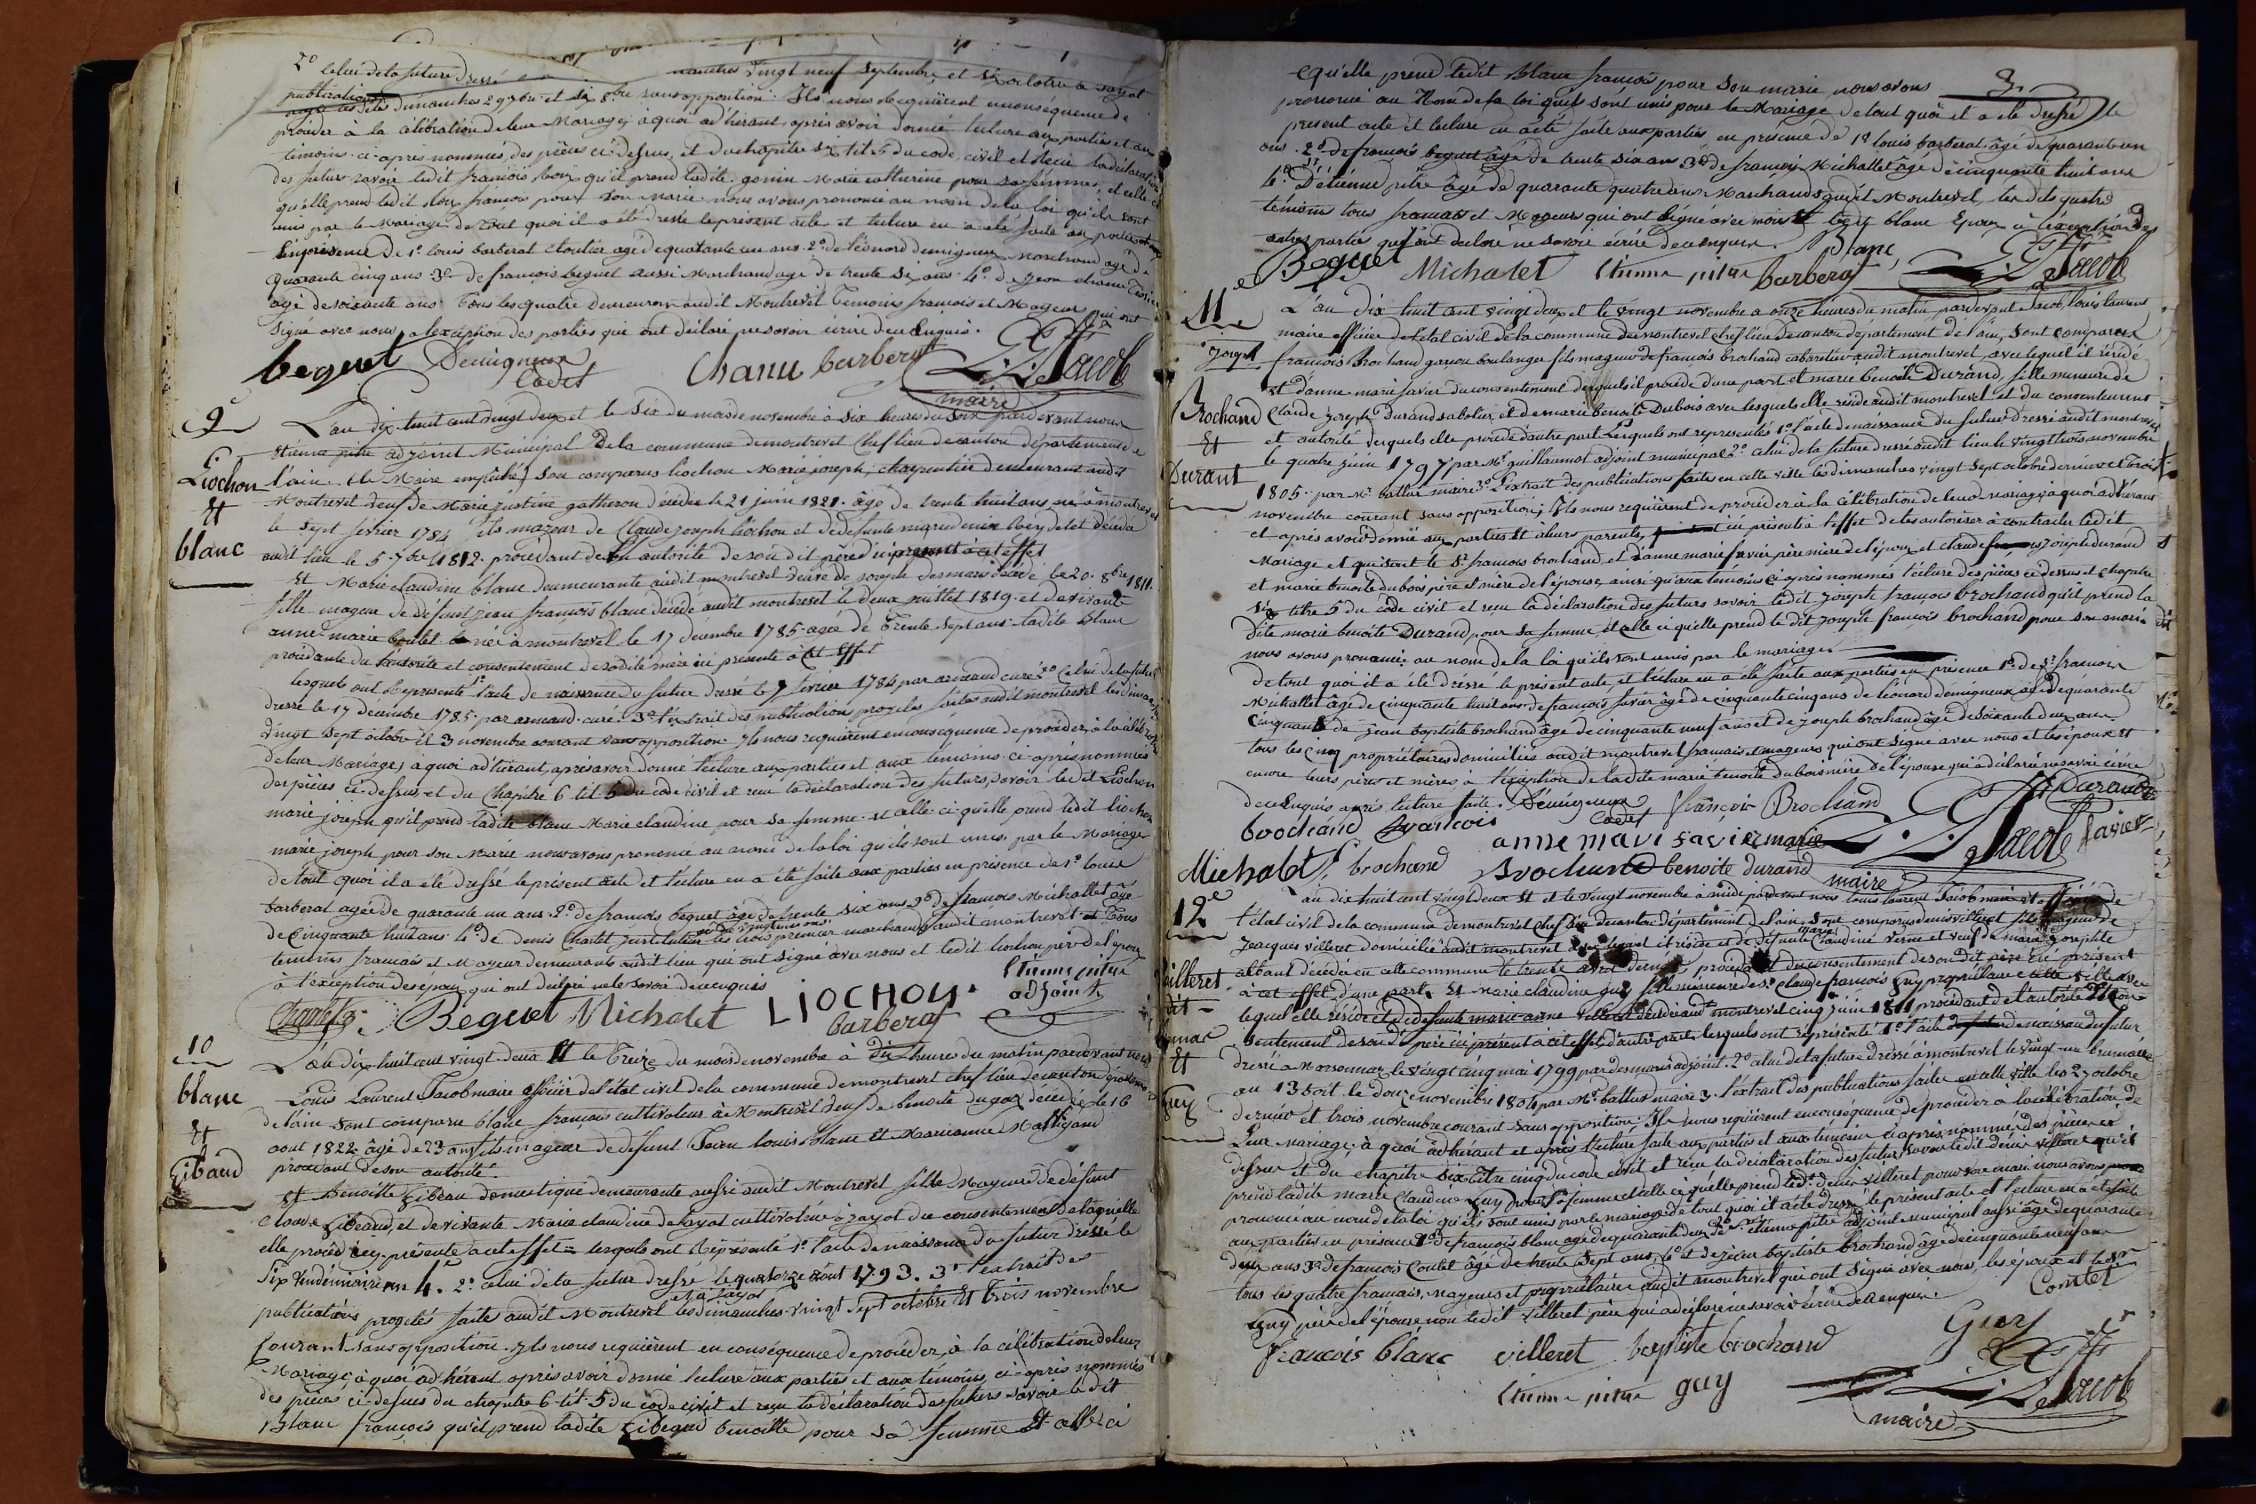 2o celui de la future dressé
publications
dimanches 29 7bre et six 8.bre sans opposition. Ils nous requièrent en conséquence de
procéder à la célébration de leur Mariage, à quoi adhérant, après avoir donné lecture aux parties et aux
temoins ci-après nommés, des pièces ci-dessus, et du chapitre six tit 5 du code civil et recu la déclaration
des futurs savoir ledit françois qu'il prend ladite gonin Marie catherine pour sa femme, et celle ci
qu'elle prend ledit françois pour son Marie nous avons prononcé au nom de la loi qu'ils sont
unis par le Mariage de Tout quoi il a été dressé le présent acte et lecture en a été faite aux parties
En présence de 1o louis barberat cloutier agé de quarante un ans. 2o de léonard demigneux marchand agé de
quarante cinq ans 3o de françois beguet aussi marchand agé de trente six ans 4o de jean chanu
agé de soixante ans Tous les quatre demeurant audit Montrevel Temoins francois et Mageurs qui ont
signé avec nous, a lexception des parties qui ont déclaré ne savoir écrire de ce Enquis.
beguet Demigneux cadet Chanu barberat L. L. Jacob
maire
9e
Liochon
Et
blanc
L'an dix huit cent vingt deux et le six du mois de novembre à six heures du soir pardevant nous
étienne pitre adjoint Municipal de la commune de montrevel Chef lieu de canton département de
l'ain (le Maire empêché) son comparus liochon Marie joseph, charpentier demeurant audit
Montrevel veuf de Marie justine gatheron décédée le 21 juin 1821. âgé de trente huit ans né à montrevel
le sept fevrier 1784 fils mageur de Claude joseph liochon et de défunte marie denise décédée
audit lieu le 5 7bre 1812. procédant de l'autorité de son dit père ici présent à cet effet
Et Marie claudine blanc demeurante audit montrevel veuve de joseph desmaris décédé le 20. 8bre 1811.
fille mageure de défunt jean françois blanc décédé audit montrevel le deux juillet 1819. et de vivante
anne marie coulet née à montrevel le 17 décembre 1785. agée de Trente sept ans ladite blanc
procédante de l'autorité et consentement de sadite mère ici présente à cet Effet
lesquels ont Représenté 1o l'acte de naissance du futur dressé le 7 fevrier 1784 par armand curé 2o celui de la future
dressé le 17 decembre 1785. par armand curé. 3o l'extrait des publications faites audit montrevel les dimanches
vingt sept octobre et 3 novembre courant sans opposition. Ils nous requièrent en conséquence de procéder, à la célébration
de leur Mariage, a quoi adhérant, après avoir donné lecture aux parties et aux temoins ci-après nommés
des pièces ci-dessus et du Chapitre 6 tit 5 du code civil et reçu la déclaration des futurs, savoir ledit Liochon
marie joseph qu'il prend ladite blanc Marie claudine pour sa femme et celle ci qu'elle prend ledit liochon
marie joseph pour son Marie nous avons prononcé au nom de la loi qu'ils sont unis par le Mariage
de tout quoi il a été dressé le présent acte et lecture en a été faite aux parties en présence de 1o louis
barberat agé de quarante un ans 2o de françois beguet âgé de trente six ans 3o de françois Michallet âgé
de Cinquante huit ans 4o de denis Charlet instituteur les trois premier marchands audit montrevel Tous
temoins francais et Mageurs demeurants audit lieu qui ont signé avec nous et ledit liochon père de l'époux
à l'exception des époux qui ont déclaré ne le savoir de ce enquis
étienne pitre
adjoint
Charlet Beguet Michalet LIOCHON barberat
10
blanc
Et
Gibaud
L'an dix huit cent vingt deux Et le Treize du mois de novembre à Dix heures du matin pardevant nous
Louis Laurent Jacob maire officier de l'état civil de la commune de montrevel chef lieu de canton département
de l'ain sont comparu blanc françois cultivateur à Montrevel veuf de benoite décédée le 16
aout 1822 âgé de 23 ans fils mageur de défunt Jean louis blanc Et Marianne
procédant de son autorité
Et Benoitte Gibeau domestique demeurante aussi audit Montrevel fille Mageure de défunt
Claude gibeaud, et de vivante Marie claudine de layat cultivatrice à jayat du consentement de laquelle
elle procède icy présente a cet effet = lesquels ont Représenté 1o l'acte de naissance du futur dressé le
six vendémiaire an 4. 2o celui de la future dressé le quatorze aout 1793. 3o l'extrait des
publications faites audit Montrevel et à jayat les dimanches vingt sept octobre Et trois novembre
Courant sans opposition. Ils nous requièrent en conséquence de procéder, à la célébration de leur
Mariage, à quoi adhérant après avoir donné lecture aux parties et aux témoins ci-après nommés
des pièces ci-dessus du chapitre 6 tit 5 du code civil et reçu la déclaration des futurs savoir ledit
Blanc françois qu'il prend ladite Gibeaud benoitte pour sa femme Et celle ci
qu'elle prend ledit Blanc françois pour son marie nous avons
prononcé au Nom de la loi qu'ils sont unis pour le Mariage de tout quoi il a été dressé le
present acte et lecture en a été faite aux parties en présence de 1o louis barberat âgé de quarante un
ans. 2o de françois beguet âgé de trente six ans 3o de françois Michallet âgé de cinquante huit ans
4o D'étienne pitre âgé de quarante quatre ans Marchands audit Montrevel, les dits quatre
témoins tous francais et Mageurs qui ont signé avec nous et ledit blanc Epoux à l'exception des
autres parties qui ont declaré ne savoir écrire de ce enquis.
Beguet Michalet étienne pitre barberat blanc L. L. Jacob
11e
Joseph
Brochand
Et
Durant
L'an dix huit cent vingt deux et le vingt novembre a onze heures du matin pardevant Jacob louis laurent
maire officier de l'état civil de la commune de montrevel chef lieu de canton département de l'ain, sont comparus
françois brochand garcon boulanger fils mageur de françois brochand cabaretier audit montrevel avec lequel il réside
et d'anne marie favier du consentement desquels il procède d'une part et marie benoite Durand, fille mineure de
Claude joseph Durand sabotier, et de marie benoite Dubois avec lesquels elle reside audit montrevel et du consentement
et autorité desquels elle procède d'autre part Lesquels ont representés 1o l'acte de naissance du futur dressé audit montrevel
le quatre juin 1797 par Mr guillaumot adjoint municipal 2o celui de la future dressé audit lieu le vingt trois novembre
1805. par Mr battur maire 3o l'extrait des publications faites en cette ville les dimanches vingt sept octobre dernier et trois
novembre courant sans opposition, Ils nous requièrent de procéder à la célébration de leur mariage, à quoi adhérant
et après avoir donné aux parties Et à leurs parents, ici présents à l'effet de les autoriser à contracter ledit
Mariage et qui sont le Sr françois brochand et d'anne marie favier père mère de l'époux et claude joseph durand
et marie benoite dubois père et mère de l'épouse, ainsi qu'aux témoins ci après nommés lecture des pièces ci dessus et chapitre
six titre 5 du code civil et reçu la déclaration des futurs savoir ledit joseph françois brochand qu'il prend la
dite marie benoite Durand, pour sa femme et celle ci qu'elle prend le dit joseph francois brochand pour son mari
nous avons prononcé au nom de la loi qu'ils sont unis par le mariage
De tout quoi il a été dressé le présent acte, et lecture en a été faite aux parties en présence 1o de Sr françois
Michallet âgé de cinquante huit ans de françois favier âgé de cinquante cinq ans de léonard demigneux âgé de quarante
cinq ans de jean baptiste brochand âgé de cinquante neuf ans et de joseph brochand âgé de soixante deux ans
tous les cinq propriétaires domiciliés audit montrevel francais et mageurs qui ont signé avec nous et les époux Et
encore leurs pères et mères à l'exception de ladite marie benoite dubois mère de l'épouse qui a déclaré ne savoir écrire
de ce Enquis après lecture faite. Demigneux cadet françois Brochand Durand
brochand francois anne mari favier marie L. L. Jacob favier
Michalet J. brochand brochand benoite durand maire
12e
villeret
dit
Et
Guy
L'an dix huit cent vingt deux Et le vingt novembre à midi pardevant nous louis laurent Jacob maire officier de
l'état civil de la commune de montrevel chef lieu de canton département de l'ain, sont comparus denis villeret fils mageur de
Jacques villeret domicilié audit montrevel avec lequel il réside et de défunte marie Claudine verne et veuf de marie josephte
décédée en cette commune le trente avril dernier, procédant du consentement de son dit père ici présent
à cet effet d'une part. Et marie claudine guy fille mineure de Sr claude francois guy propriétaire en cette ville avec
lequel elle réside et de defunte marie anne villeret décédée audit montrevel cinq juin 1811 procédant de l'autorité Et con-
sentement de son dit père ici présent à cet effet, d'autre part, lesquels ont représenté 1o l'acte de naissance du futur
dressé à Marsonnas le vingt cinq mai 1799 par desmaris adjoint. 2o celui de la future dressé à montrevel le vingt un brumaire
an 13 soit le douze novembre 1804 par Mr battur maire 3. l'extrait des publications faites en cette ville les 27 octobre
dernier et trois novembre courant sans opposition. Ils nous requièrent en conséquence de procéder à la célébration de
Leur mariage, à quoi adhérant et après lecture faite aux parties et aux témoins ci après nommés des pièces ci
dessus et du chapitre six titre cinq du code civil et reçu la déclaration des futurs, savoir ledit denis villeret qu'il
prend ladite marie Claudine guy pour sa femme et celle ci qu'elle prend ledt denis villeret pour son mari nous avons
prononcé au nom de la loi qu'ils sont unis par le mariage de tout quoi il a été dressé le présent acte et lecture en a été faite
aux parties en présence 1o de françois blanc agé de quarante deux ans 2o Sr étienne pitre adjoint municipal aussi âgé de quarante
deux ans 3o de francois Coulet âgé de trente sept ans, 4o et de jean baptiste brochand âgé de cinquante neuf ans
tous les quatre francais, mageurs et propriétaires audit montrevel qui ont signé avec nous, les époux et le Sr
Guy père de l'épouse non ledit villeret père qui a déclaré ne savoir écrire de ce enquis.
françois blanc villeret baptiste brochand Guy
étienne pitre guy L. L. Jacob
maire